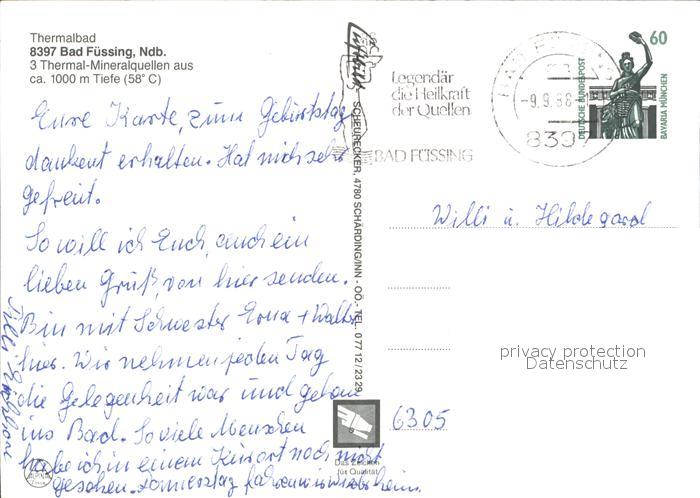 Thermalbad
8397 Bad Füssing, Ndb.
3 Thermal-Mineralquellen aus
ca. 1000 m Tiefe (58° C)
Eure Karte, zum Geburtstag
dankent erhalten. Hat mich sehr
gefreut.
So will ich Euch, auch ein
lieben Gruß, von hier senden.
Bin mit Schwester Erna + Walter
hier. Wir nehmen jeden Tag
die Gelegenheit war und gehen
ins Bad. So viele Menschen
habe ich in einem Kurort noch nicht
gesehen. Donnerstag fahren wir wieder heim.
Luftbild
SCHEURECKER, 4780 SCHÄRDING/INN - OÖ.- TEL. 0 77 12 / 23 29
Legendär
die Heilkraft
der Quellen
BAD FÜSSING
BAD FÜSSING
-9.9.88-
8397
60
DEUTSCHE BUNDESPOST
BAYARIA MÜNCHEN
Willi u. Hildegard
privacy protection
Datenschutz
6305
Das Zeichen
für Qualität